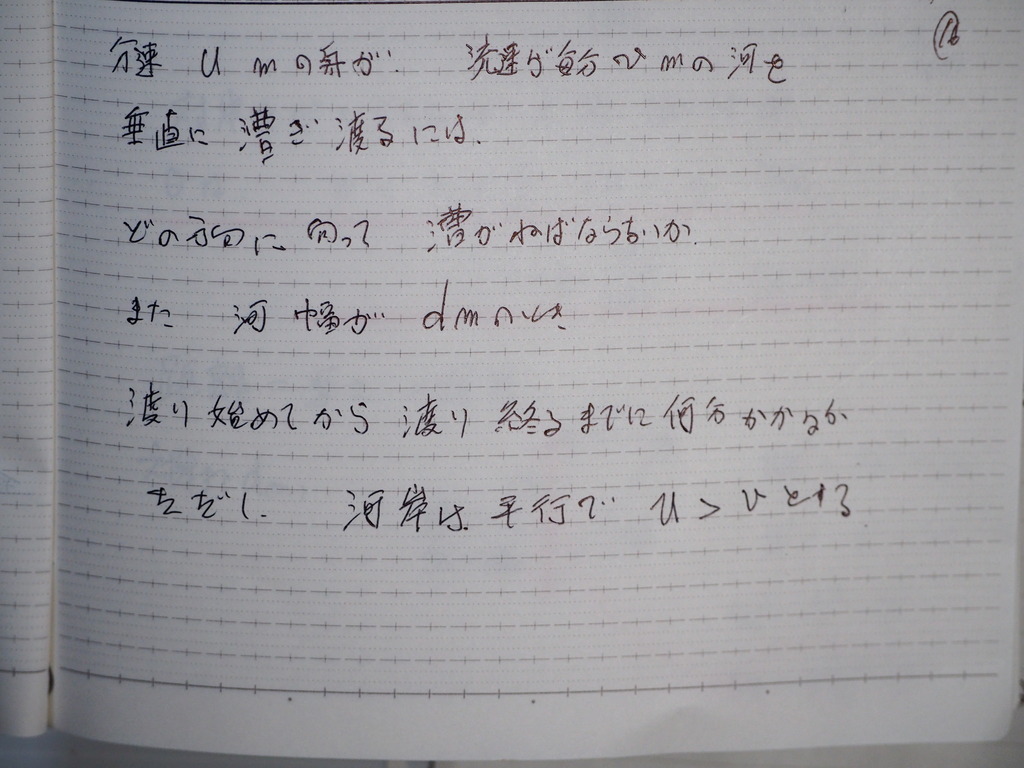 分速 u mの舟が. 流速が毎分 v mの河を
垂直に 漕ぎ 渡るには.
どの方向に 向って 漕がねばならないか.
また 河 幅が d mのとき
渡り 始めてから 渡り 終るまでに 何分かかるか
ただし. 河岸は 平行で u > v とする